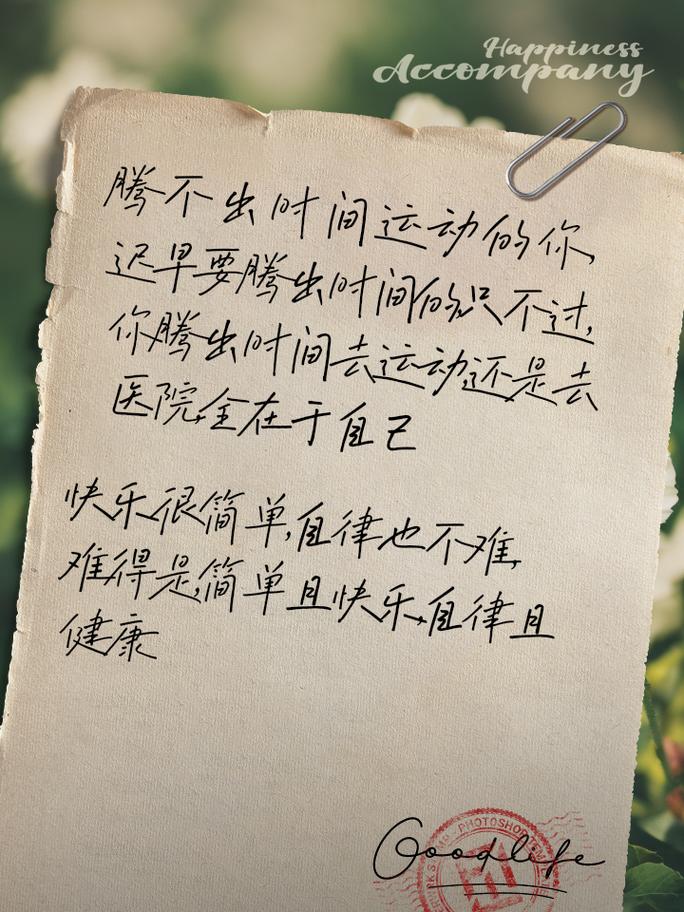 Happiness
Accompany
腾不出时间运动的你,
迟早要腾出时间的,只不过,
你腾出时间去运动,还是去
医院,全在于自己
快乐很简单,自律也不难,
难得是,简单且快乐,自律且
健康
PHOTOSHOP
Goodlife